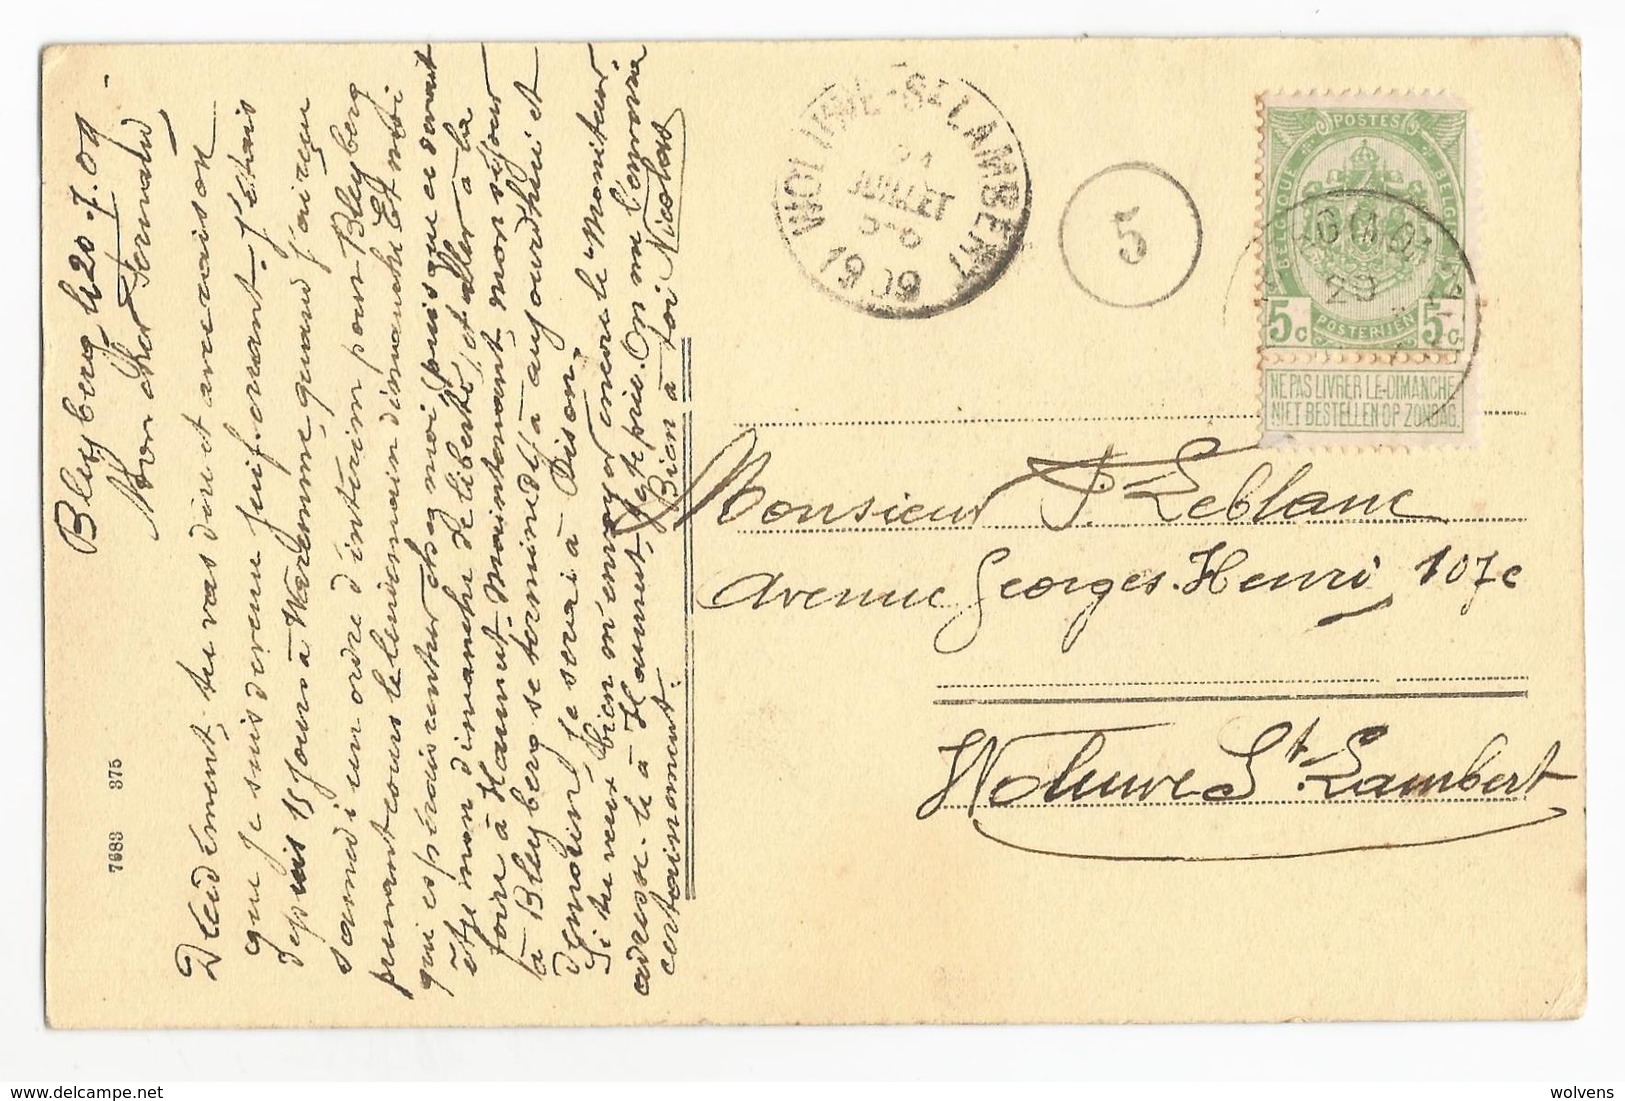 Bleyberg le 20.7.09 -
Mon cher Fernand
Décidément, tu vas dire et avec raison
que je suis devenu Juif-errant. J'étais
depuis 15 jours à Waremme quand j'ai reçu
samedi un ordre d'intérim pour Bleyberg
prenant cours le lendemain dimanche Et moi
qui espérais rentrer chez moi puisque ce serait
été mon dimanche de liberté, et aller à la
foire à Hannut. Maintenant mon séjour
à Bleyberg se termine déjà aujourd'hui et
demain, je serai à Dison.
Si tu veux bien m'envoyer encore le Moniteur
adresse-le à Hannut, je te prie. On me l'enverra
certainement.
Bien à toi Nicolas
7683 375
WOLUWE-ST LAMBERT
21
JUILLET
1909
5
POSTES
BELGIQUE
BELGIË
5c
POSTERIJEN
5c
NE PAS LIVRER LE DIMANCHE
NIET BESTELLEN OP ZONDAG
Monsieur F. Leblanc
Avenue Georges-Henri, 107c
Woluwe St. Lambert
wolvens